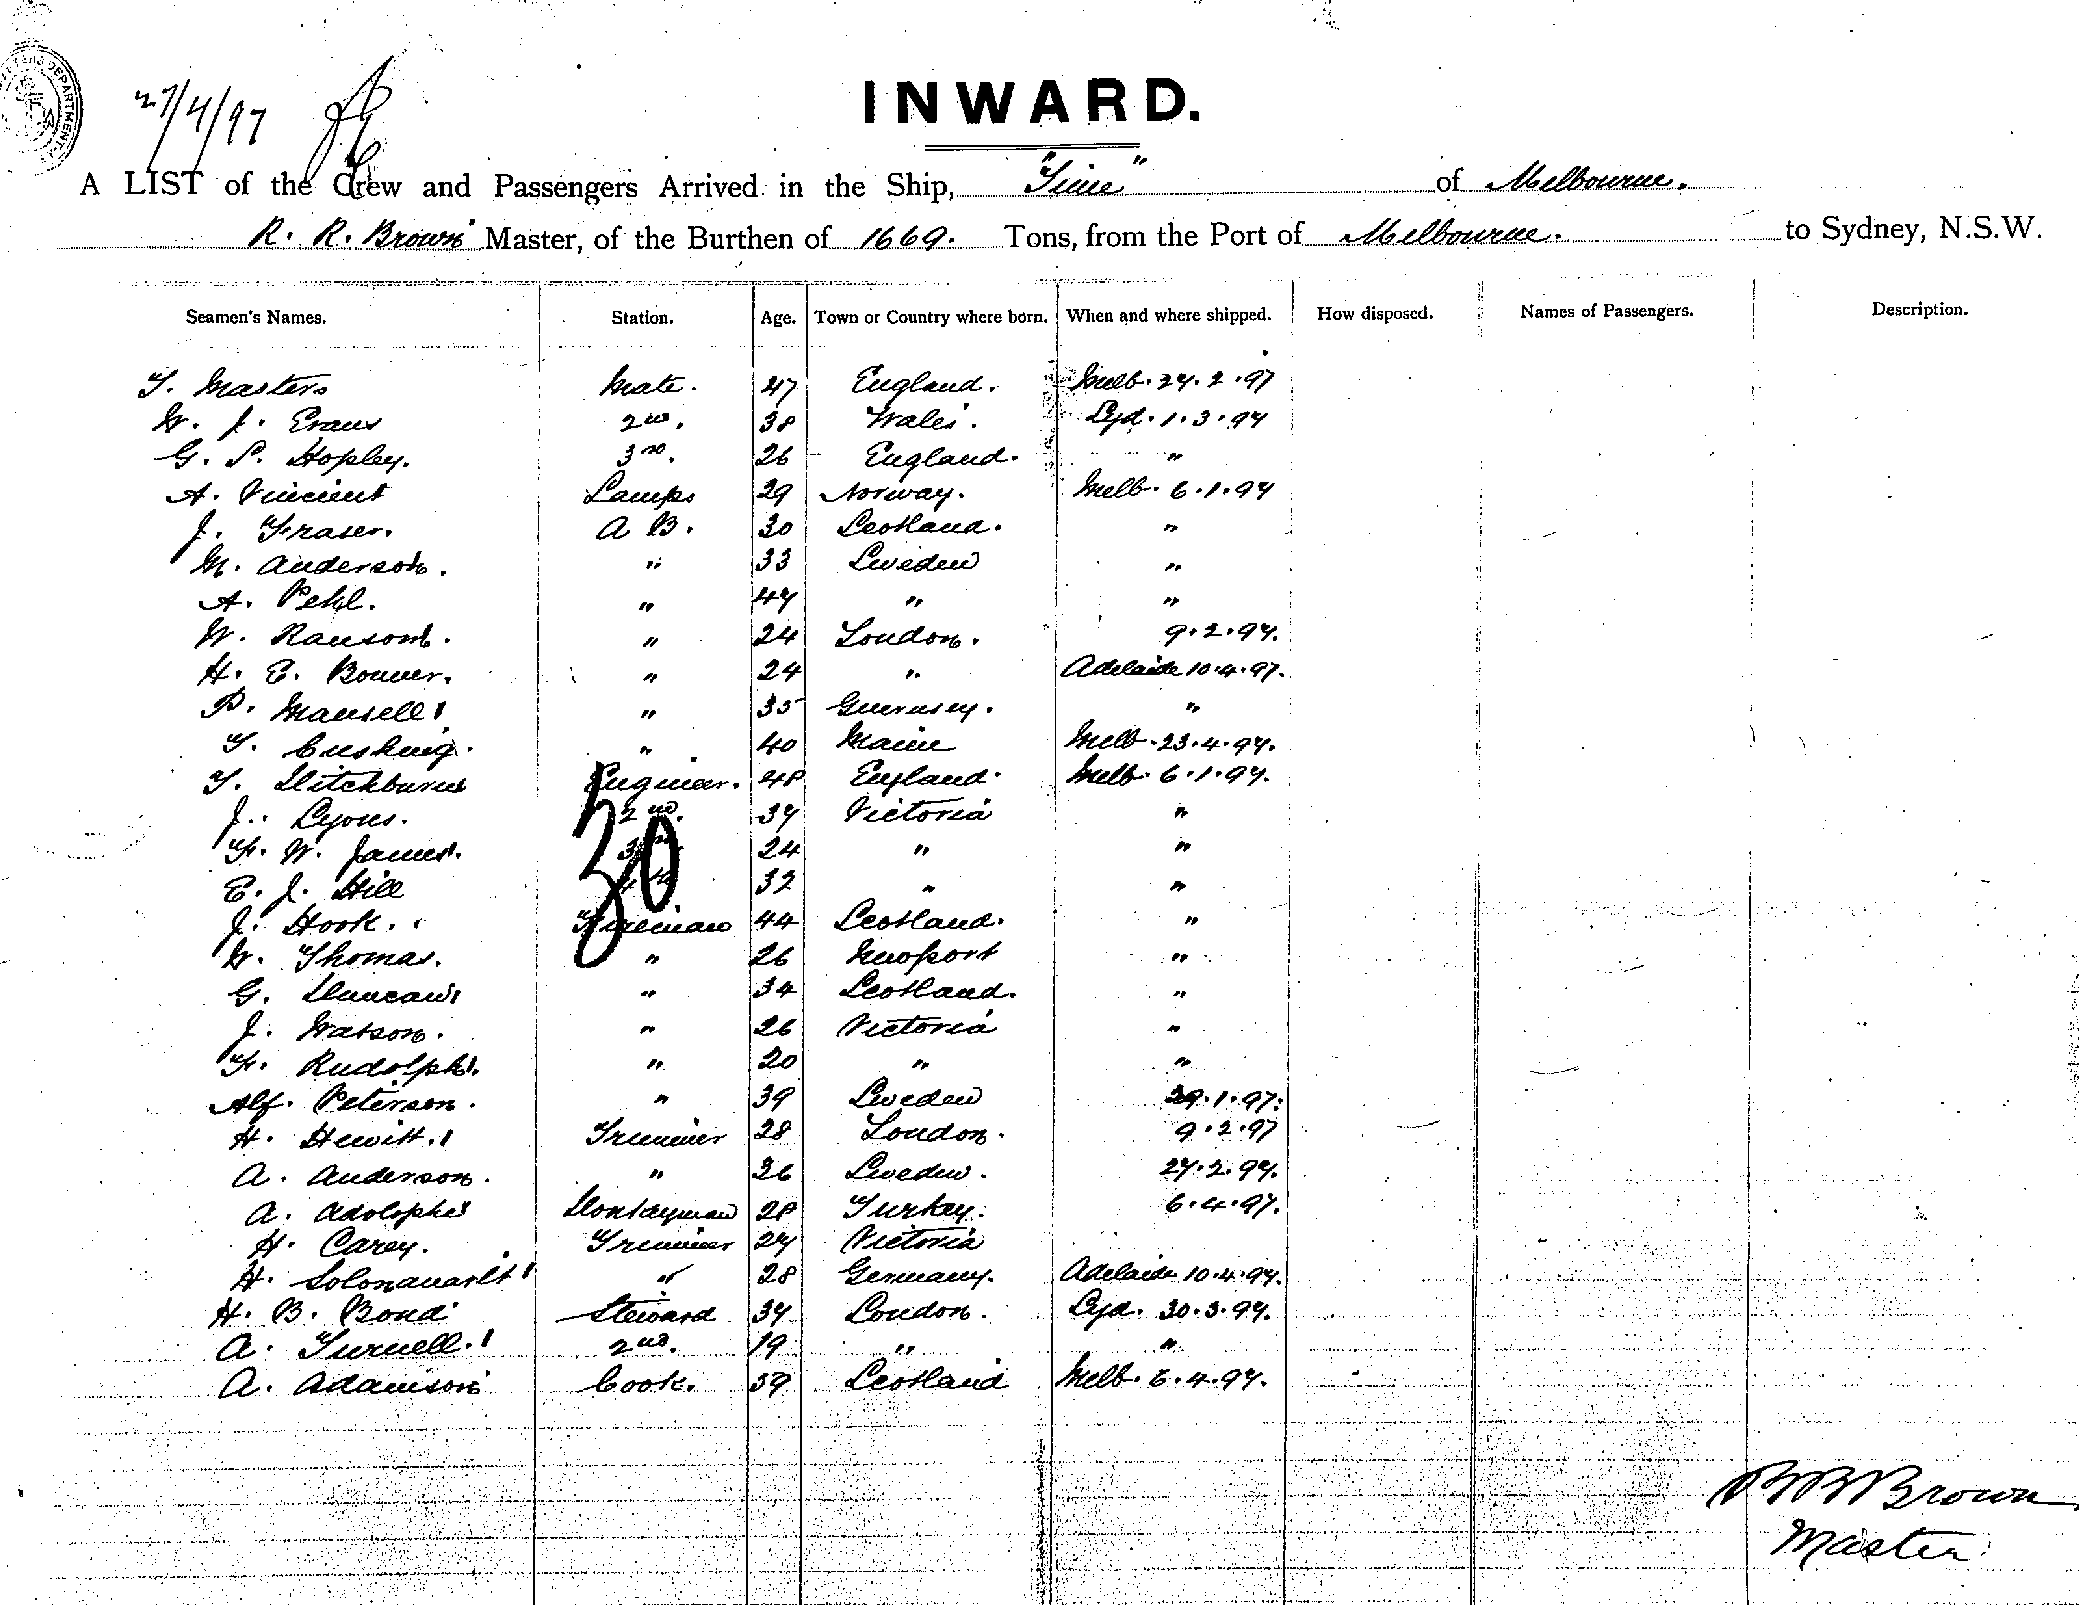 27/4/97
INWARD.
A LIST of the Crew and Passengers Arrived in the Ship, "Time" of Melbourne.
R. R. Brown Master, of the Burthen of 1669. Tons, from the Port of Melbourne. to Sydney, N.S.W.
Seamen's Names. Station. Age. Town or Country where born. When and where shipped. How disposed. Names of Passengers. Description.
T. Masters Mate. 47 England. Melb. 24.2.97
W. J. Evans 2nd. 38 Wales. Syd. 1.3.97
G. P. Hopley. 3rd. 26 England. "
A. Vincent Lamps 29 Norway. Melb. 6.1.97
J. Fraser. A B. 30 Scotland. "
M. Anderson. " 33 Sweden "
A. Pehl. " 47 " "
W. Ransom. " 24 London. 9.2.97.
H. E. Bonner. " 24 " Adelaide 10.4.97.
P. Mansell " 35 Guernsey. "
T. Cushing. " 40 Maine Melb. 23.4.97.
T. Ditchburn Engineer. 48 England. Melb. 6.1.97.
J. Lyons. 2nd. 37 Victoria "
F. W. James. 3rd 24 " "
E. J. Hill 4th 32 " "
30
J. Hook. Fireman 44 Scotland. "
W. Thomas. " 26 Newport "
G. Duncan " 34 Scotland. "
J. Watson. " 26 Victoria "
F. Rudolph. " 20 " "
Alf. Peterson. " 39 Sweden 29.1.97.
H. Hewitt. Trimmer 28 London. 9.2.97
A. Anderson. " 36 Sweden. 27.2.97.
A. Adolphe Donkeyman 28 Turkey. 6.4.97.
H. Carey. Trimmer 27 Victoria
H. " 28 Germany. Adelaide 10.4.97.
H. B. Bond Steward 37 London. Syd. 30.3.97.
A. Turnell. 2nd. 19 " "
A. Adamson Cook. 59 Scotland Melb. 6.4.97.
R R Brown
Master